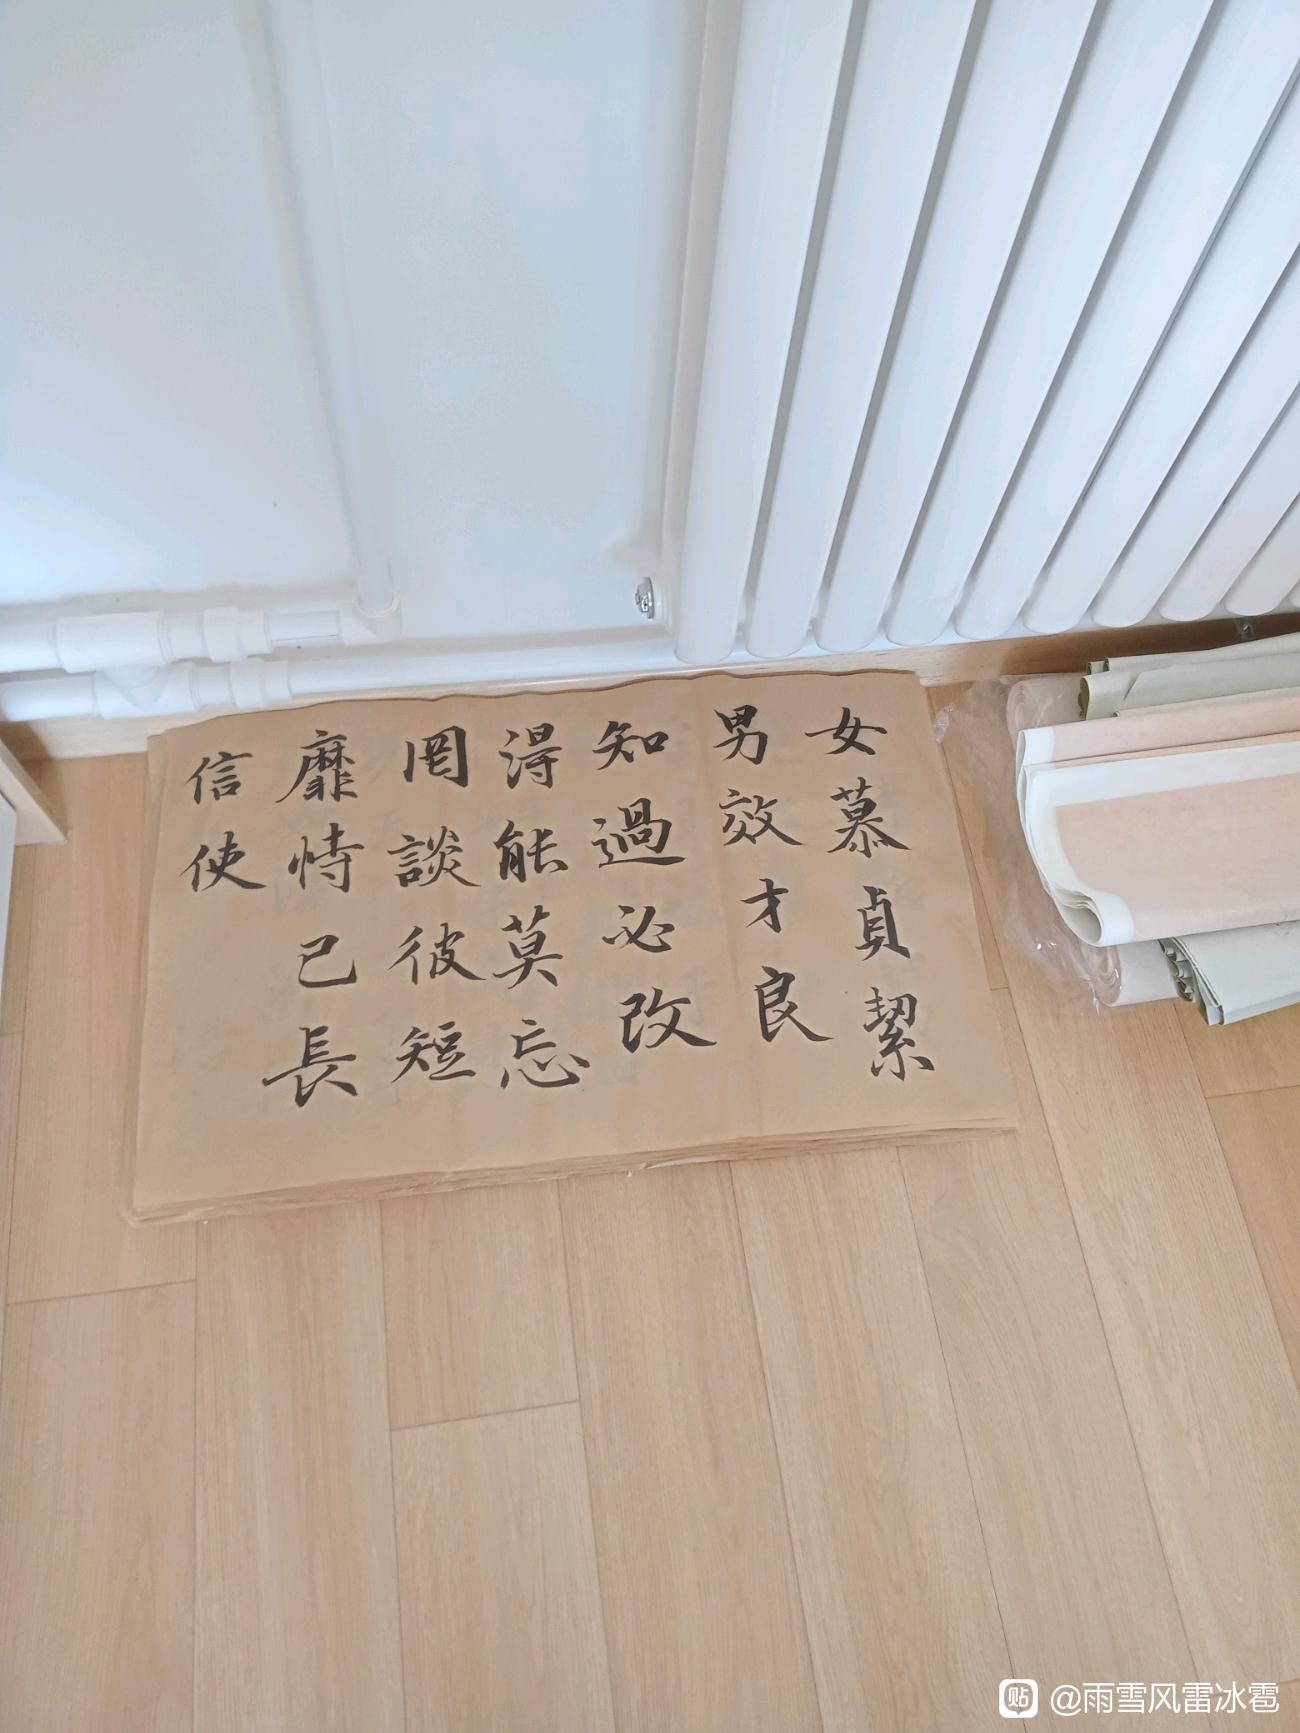 女慕貞絜
男效才良
知過必改
得能莫忘
罔談彼短
靡恃己長
信使
贴 @雨雪风雷冰雹